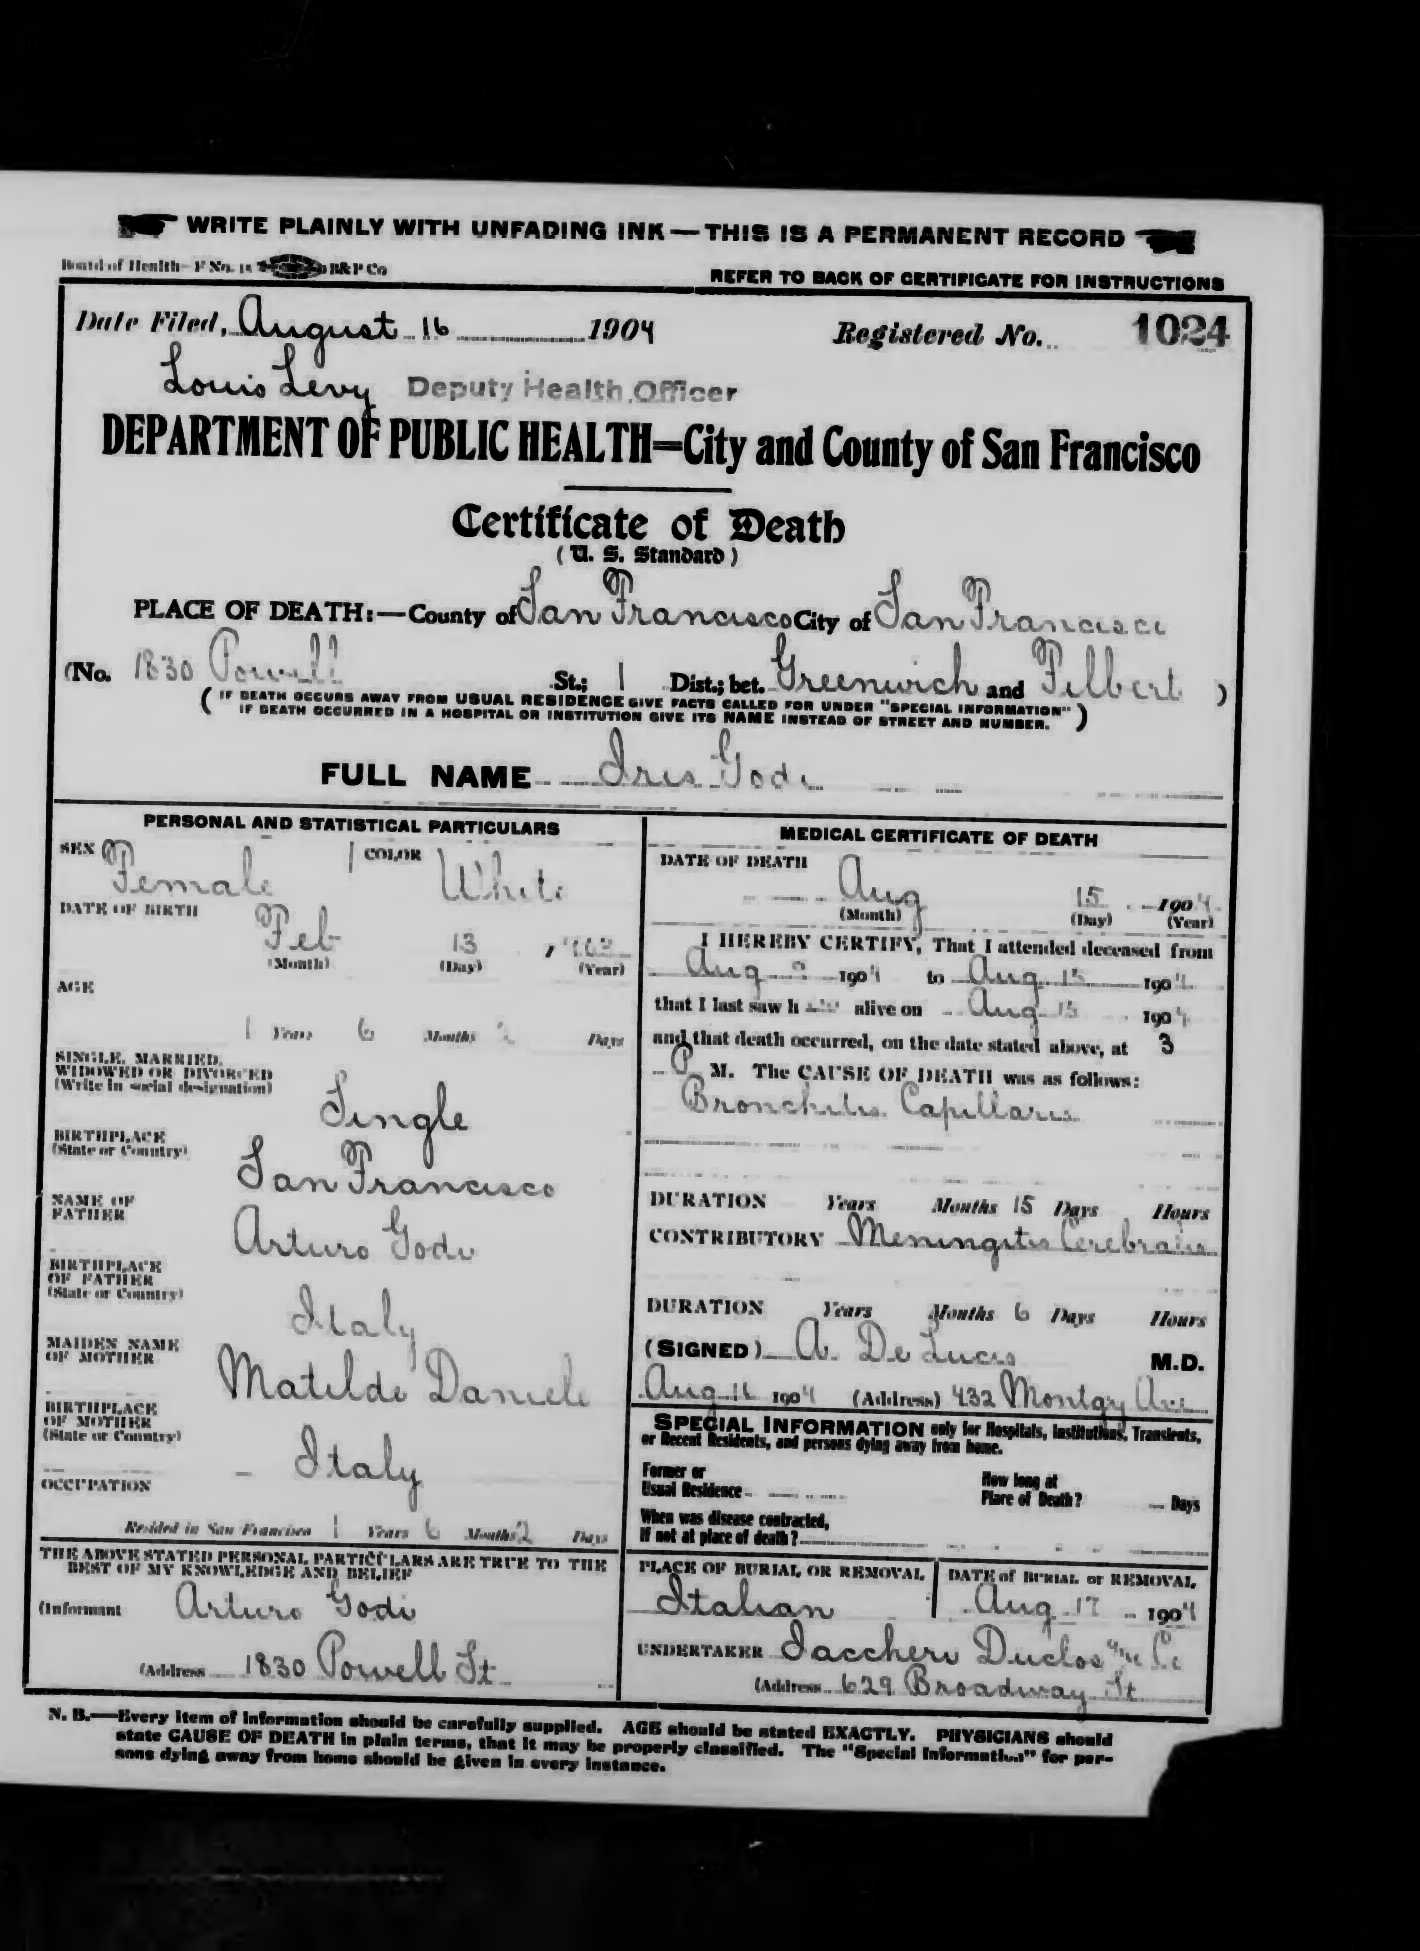 WRITE PLAINLY WITH UNFADING INK — THIS IS A PERMANENT RECORD
Board of Health—F No. 15 B&P Co
REFER TO BACK OF CERTIFICATE FOR INSTRUCTIONS
Date Filed, August 16 1904 Registered No. 1024
Louis Levy Deputy Health Officer
DEPARTMENT OF PUBLIC HEALTH=City and County of San Francisco
Certificate of Death
( U. S. Standard )
PLACE OF DEATH:—County of San Francisco City of San Francisco
(No. 1830 Powell St.; 1 Dist.; bet. Greenwich and Filbert )
( IF DEATH OCCURS AWAY FROM USUAL RESIDENCE GIVE FACTS CALLED FOR UNDER "SPECIAL INFORMATION"
IF DEATH OCCURRED IN A HOSPITAL OR INSTITUTION GIVE ITS NAME INSTEAD OF STREET AND NUMBER. )
FULL NAME Iris Godi
PERSONAL AND STATISTICAL PARTICULARS
SEX Female COLOR White
DATE OF BIRTH
Feb 13, 1903
(Month) (Day) (Year)
AGE
1 Years 6 Months 2 Days
SINGLE, MARRIED,
WIDOWED OR DIVORCED
(Write in social designation)
Single
BIRTHPLACE
(State or Country)
San Francisco
NAME OF
FATHER
Arturo Godi
BIRTHPLACE
OF FATHER
(State or Country)
Italy
MAIDEN NAME
OF MOTHER
Matilde Daniele
BIRTHPLACE
OF MOTHER
(State or Country)
Italy
OCCUPATION
Resided in San Francisco 1 Years 6 Months 2 Days
THE ABOVE STATED PERSONAL PARTICULARS ARE TRUE TO THE
BEST OF MY KNOWLEDGE AND BELIEF
(Informant Arturo Godi
(Address 1830 Powell St
MEDICAL CERTIFICATE OF DEATH
DATE OF DEATH
Aug 15 1904
(Month) (Day) (Year)
I HEREBY CERTIFY, That I attended deceased from
Aug 1904 to Aug 15 1904
that I last saw h alive on Aug 15 1904
and that death occurred, on the date stated above, at 3
P M. The CAUSE OF DEATH was as follows:
Bronchitis Capillaris
DURATION Years Months 15 Days Hours
CONTRIBUTORY Meningitis Cerebralis
DURATION Years Months 6 Days Hours
(SIGNED) A. De Lucis M.D.
Aug 16 1904 (Address) 432 Montgy Ave
SPECIAL INFORMATION only for Hospitals, Institutions, Transients,
or Recent Residents, and persons dying away from home.
Former or
Usual Residence
How long at
Place of Death? Days
When was disease contracted,
If not at place of death?
PLACE OF BURIAL OR REMOVAL
Italian
DATE of BURIAL or REMOVAL
Aug 17 1904
UNDERTAKER Iaccheri Duclos & Co
(Address 629 Broadway St
N. B.—Every item of information should be carefully supplied. AGE should be stated EXACTLY. PHYSICIANS should
state CAUSE OF DEATH in plain terms, that it may be properly classified. The "Special Information" for per-
sons dying away from home should be given in every instance.